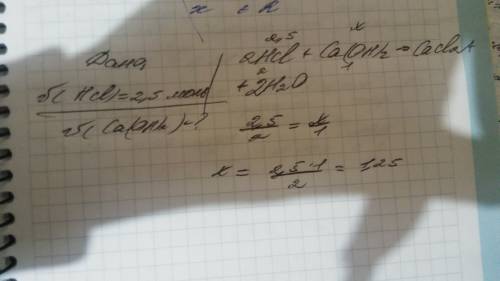 x
Дано
ν(HCl)=2,5 моль
ν(Ca(OH)₂)-?
2,5 x
2HCl + Ca(OH)₂ = CaCl₂+
2 1
+2H₂O
2,5/2 = x/1
x = 2,5·1/2 = 1,25